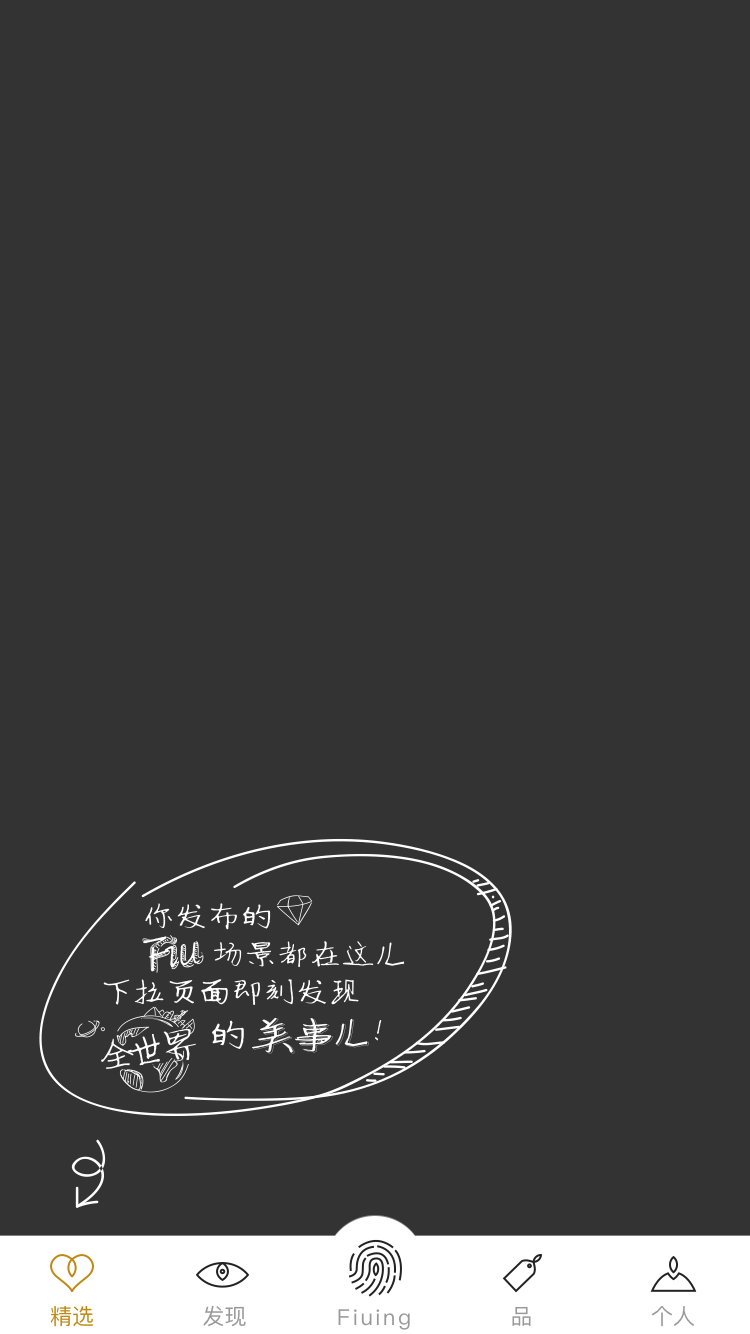 你发布的
Fiu 场景都在这儿
下拉页面即刻发现
全世界的美事儿!
精选 发现 Fiuing 品 个人